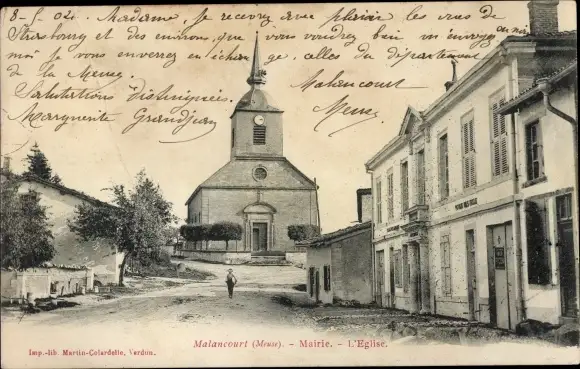 8-5-02. Madame, Je recevrai avec plaisir les vues de
Strasbourg et des environs, que vous voudrez bien m'envoyer
moi, vous enverrez en échange, celles du département
de la Meuse.
Salutations distinguées
Marguerite Grandjean
Malancourt
Meuse
Malancourt (Meuse). - Mairie. - L'Eglise.
Imp.-lib. Martin-Colardelle, Verdun.